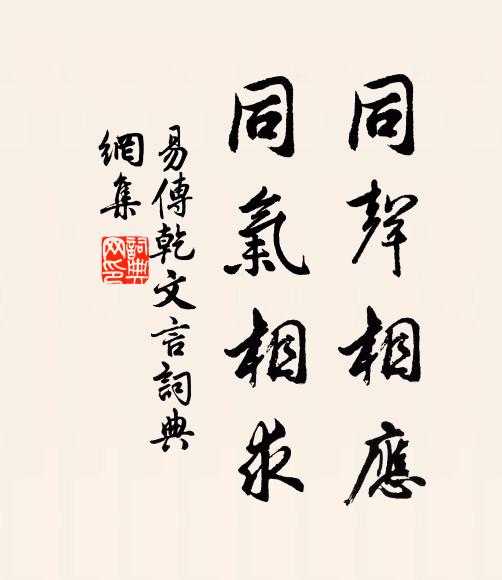 同聲相應
同氣相求
易傳乾文言詞典
網集
詞典
網印